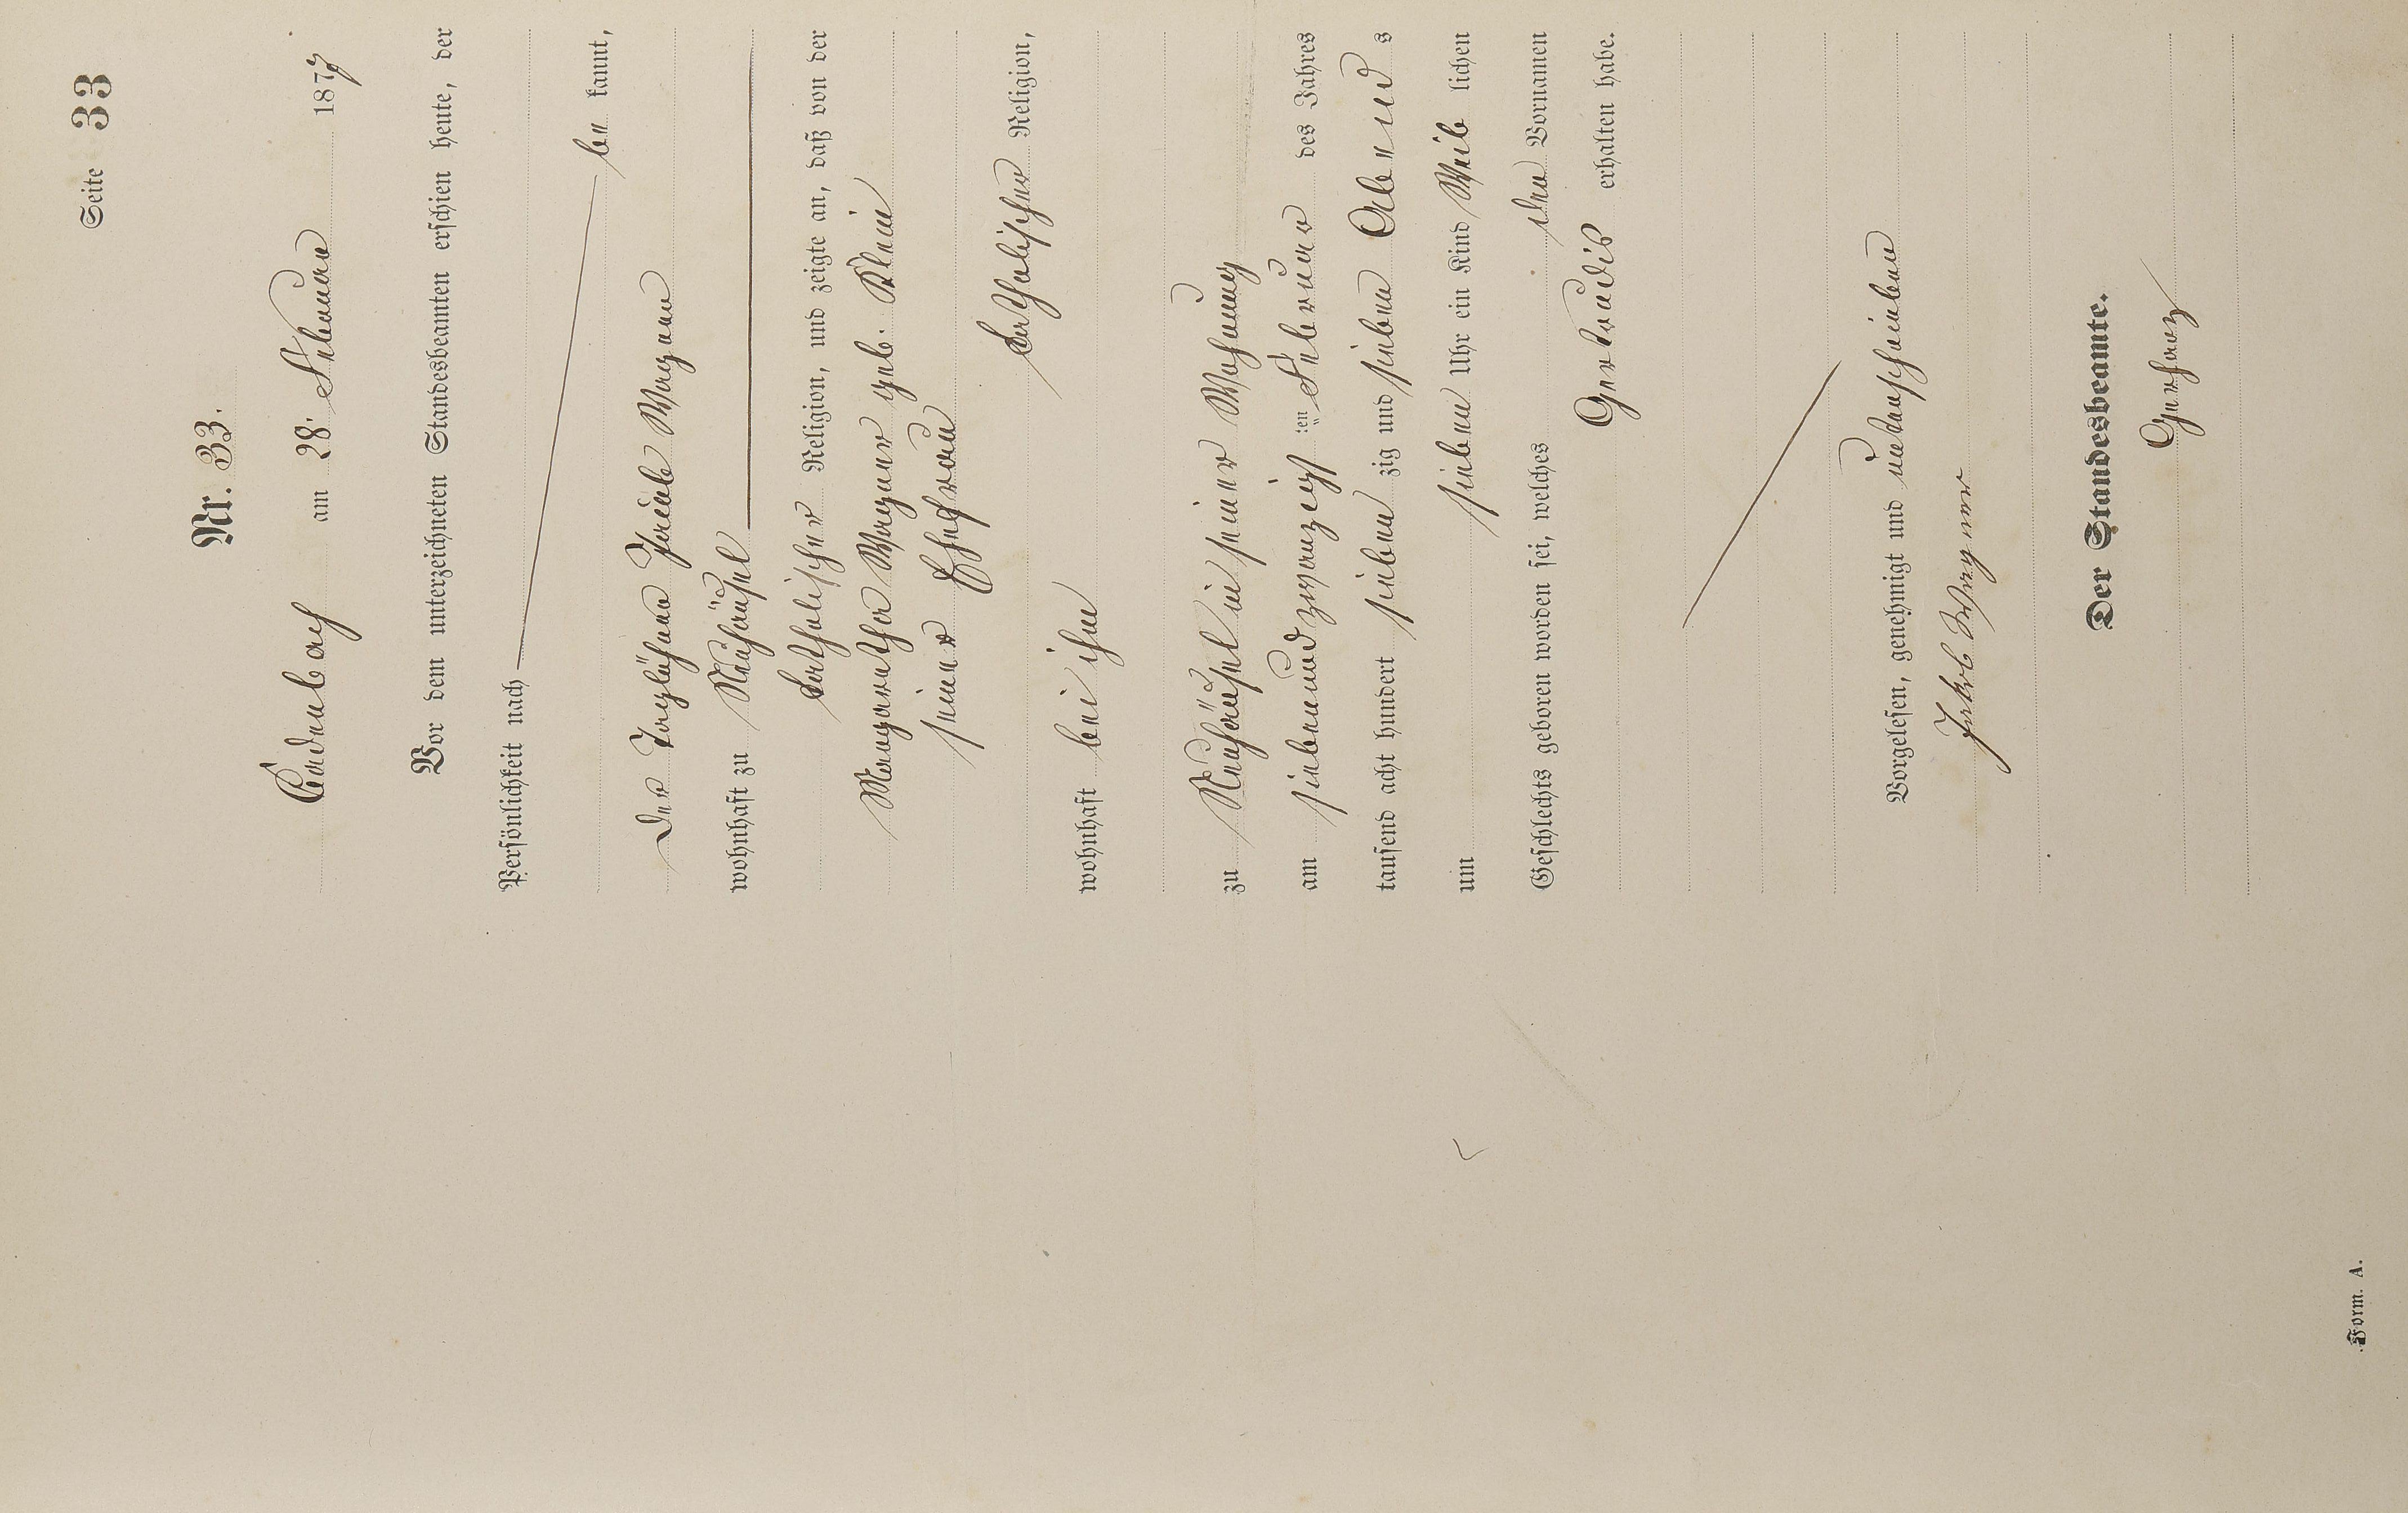 Seite 33
Nr. 33.
Cadenbach am 28. Februar 1877
Vor dem unterzeichneten Standesbeamten erschien heute, der
Persönlichkeit nach
be kannt,
der Taglöhner Jakob Wagner
wohnhaft zu Neuhäusel
katholischer Religion, und zeigte an, daß von der
Margaretha Wagner geb. Klein
seiner Ehefrau
katholischer Religion,
wohnhaft bei ihm
zu Neuhäusel in seiner Wohnung
am siebenundzwanzigsten Februar des Jahres
tausend acht hundert sieben zig und sieben Abends
um sieben Uhr ein Kind Weib lichen
Geschlechts geboren worden sei, welches den Vornamen
Gertrudis erhalten habe.
Vorgelesen, genehmigt und unterschrieben
Jakob Wagner
Der Standesbeamte.
Gerharz
Form. A.